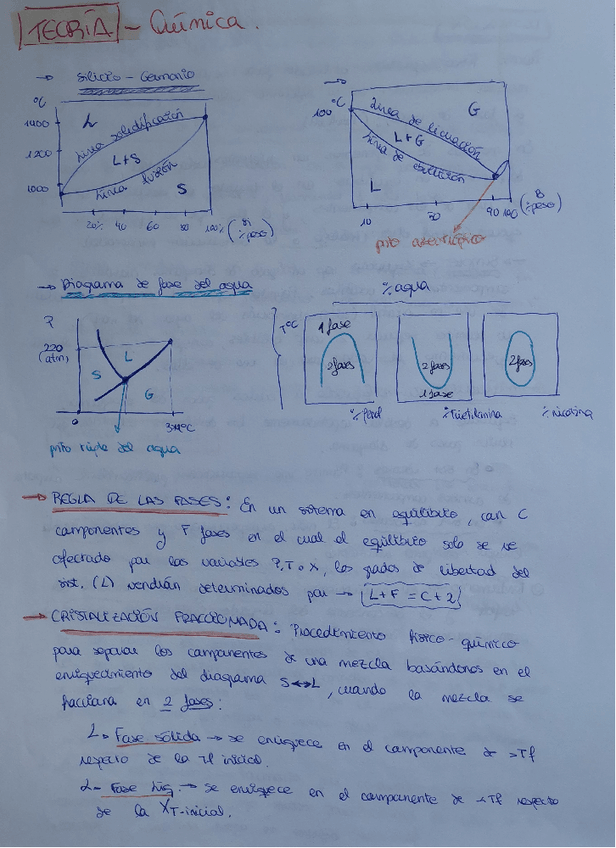 TEORÍA - Química.
→ Silicio - Germanio
→
ºC
1400
1200
1000
L
Línea solidificación
L+S
Línea fusión
S
20% 40 60 80 100% (% peso)
100ºC
G
Línea de licuación
L+G
Línea de ebullición
L
10 90 100 B (% peso)
pnto azeotrópico
→ Diagrama de fase del agua
P
220 (atm)
S
L
G
0 374ºC
pnto triple del agua
% agua
TºC
1 fase
2 fases
2 fases
1 fase
2 fases
% Fenol % Trietilamina % nicotina
→ REGLA DE LAS FASES: En un sistema en equilibrio, con C
componentes y F fases en el cual el equilibrio solo se ve
afectado por las variables P, T o X, los grados de libertad del
sist. (L) vendrán determinados por → L+F = C+2
→ CRISTALIZACIÓN FRACCIONADA: Procedimiento físico-químico
para separar los componentes de una mezcla basándonos en el
enriquecimiento del diagrama S↔L, cuando la mezcla se
fracciona en 2 fases:
↳ Fase sólida → se enriquece en el componente de >Tf
respecto de la inicial.
↳ Fase líq. → se enriquece en el componente de <Tf respecto
de la XT-inicial.